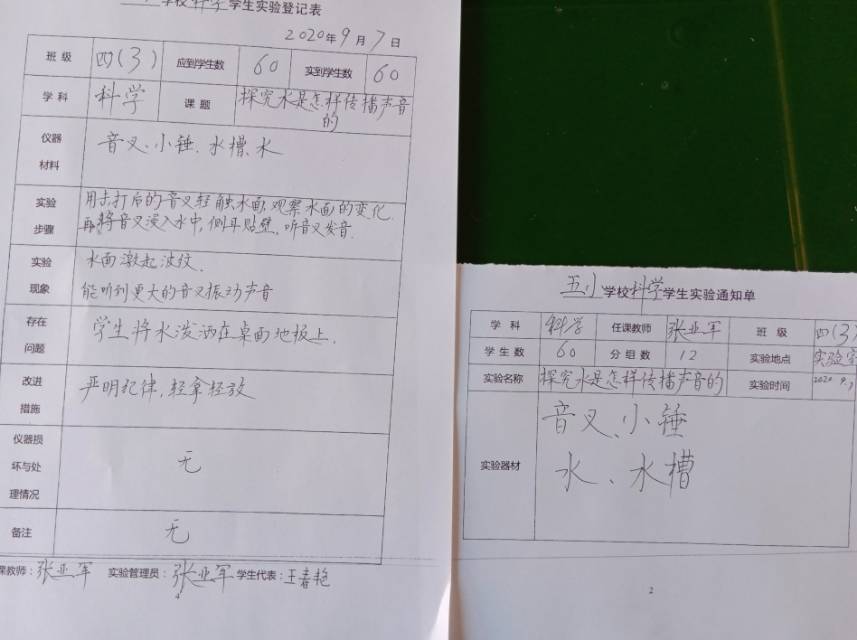 学校科学学生实验登记表
2020年9月7日
班级 四(3) 应到学生数 60 实到学生数 60
学科 科学 课题 探究水是怎样传播声音的
仪器材料 音叉、小锤、水槽、水
实验步骤 用击打后的音叉轻触水面,观察水面的变化.
再将音叉浸入水中,侧耳贴壁,听音叉发音.
实验现象 水面激起波纹.
能听到更大的音叉振动声音
存在问题 学生将水泼洒在桌面地板上.
改进措施 严明纪律,轻拿轻放
仪器损坏与处理情况 无
备注 无
课教师:张亚军 实验管理员:张亚军 学生代表:王春艳
五小学校科学学生实验通知单
学科 科学 任课教师 张亚军 班级 四(3)
学生数 60 分组数 12 实验地点 实验室
实验名称 探究水是怎样传播声音的 实验时间 2020 9.7
实验器材 音叉、小锤
水、水槽
2